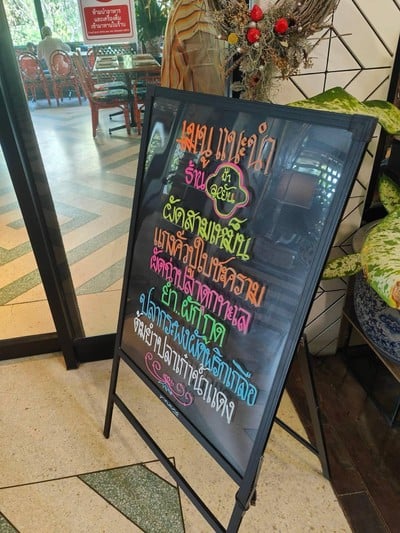 ห้ามนำอาหาร
และเครื่องดื่ม
เข้ามาทานในร้าน
เมนูแนะนำ
ร้าน ป้า
ผัดสามเหม็น
แกงคั่วปูใบชะคราม
ผัดฉ่าปลาดุกทะเล
ยำผักกูด
ปลากะพงผัดพริกเกลือ
ต้มยำปลาเก๋าน้ำแดง